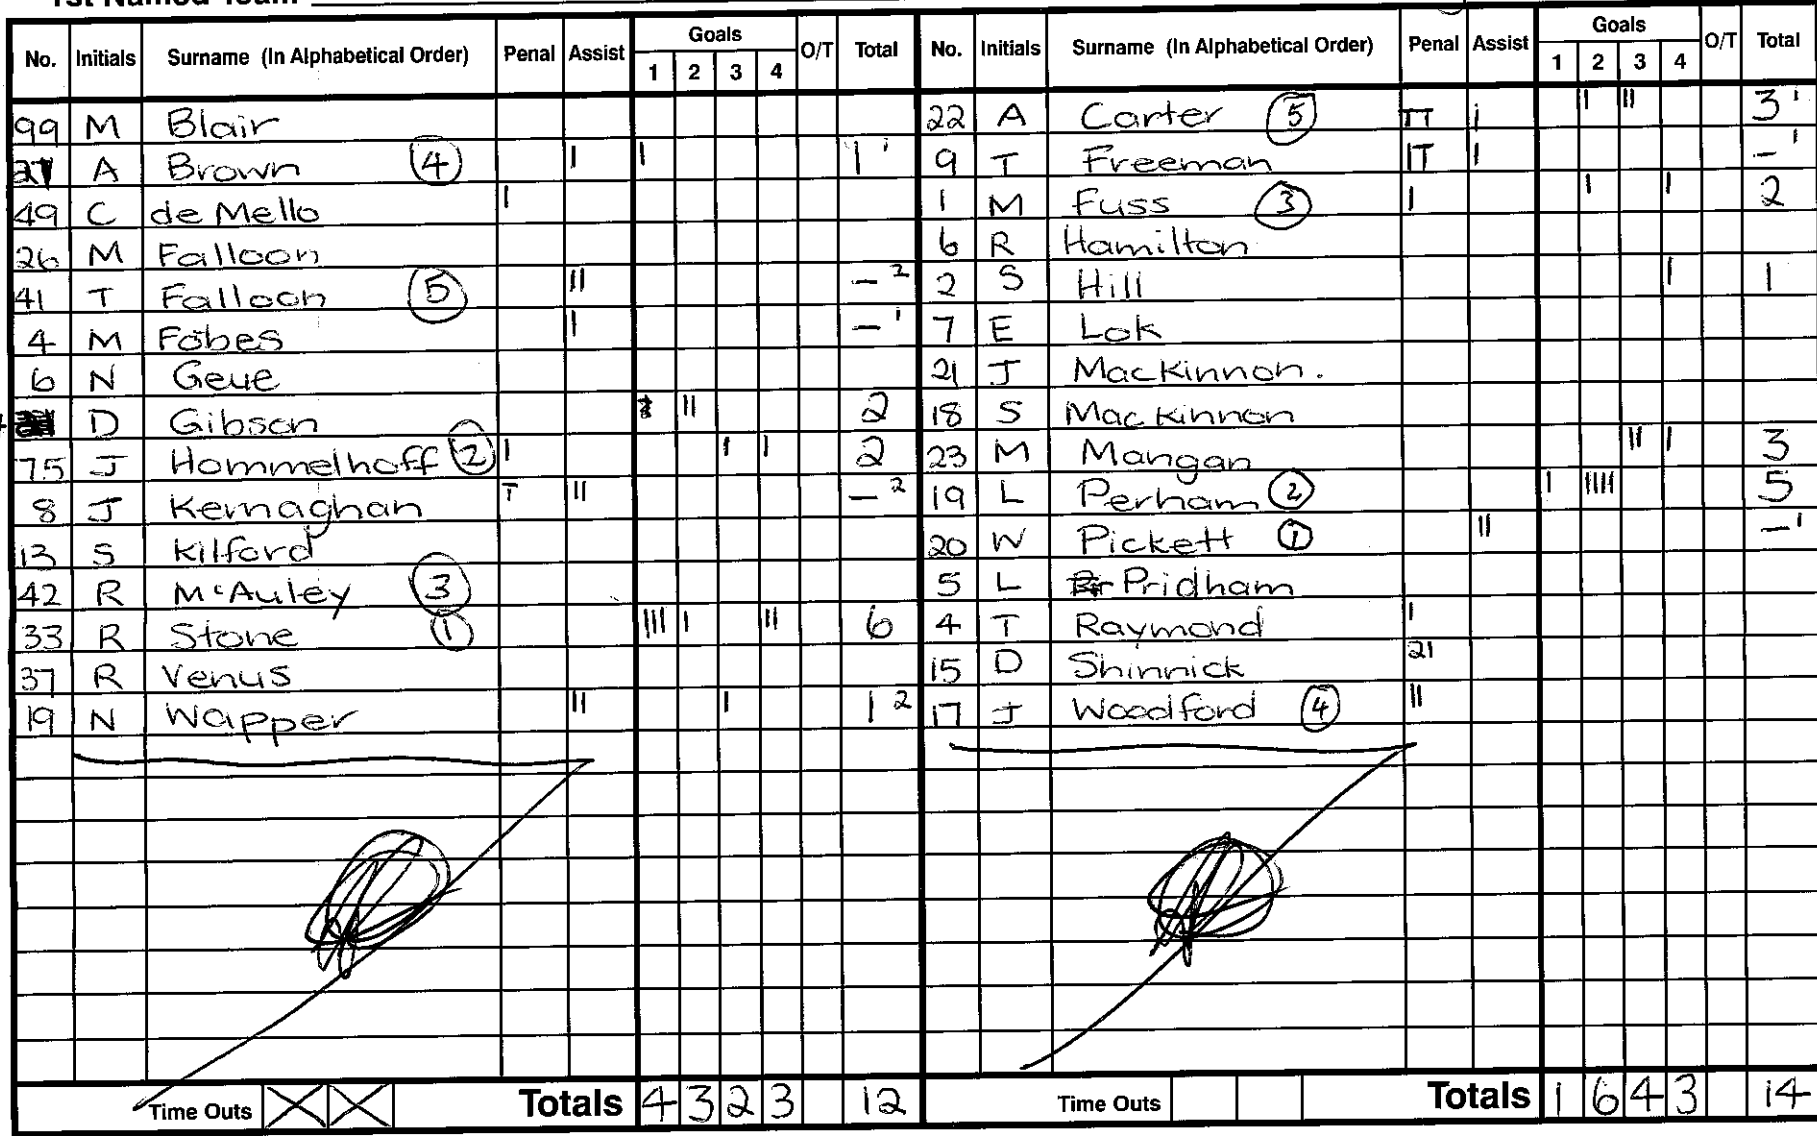 1st Named Team
No. Initials Surname (In Alphabetical Order) Penal Assist Goals 1 2 3 4 O/T Total
99 M Blair
A Brown 4 I I 1 '
49 C de Mello I
26 M Falloon
41 T Falloon 5 II – 2
4 M Fobes I – '
6 N Geue
D Gibson II 2
75 J Hommelhoff 2 I I I 2
8 J Kernaghan T II – 2
13 S Kilford
42 R McAuley 3
33 R Stone 1 III I II 6
37 R Venus
19 N Wapper II I 1 2
Time Outs X X Totals 4 3 2 3 12
No. Initials Surname (In Alphabetical Order) Penal Assist Goals 1 2 3 4 O/T Total
22 A Carter 5 TT I I II 3 '
9 T Freeman IT I – '
1 M Fuss 3 I I I 2
6 R Hamilton
2 S Hill I 1
7 E Lok
21 J Mackinnon.
18 S Mackinnon
23 M Mangan II I 3
19 L Perham 2 I IIII 5
20 W Pickett 1 II – '
5 L Pridham
4 T Raymond I
15 D Shinnick 21
17 J Woodford 4 II
Time Outs Totals 1 6 4 3 14